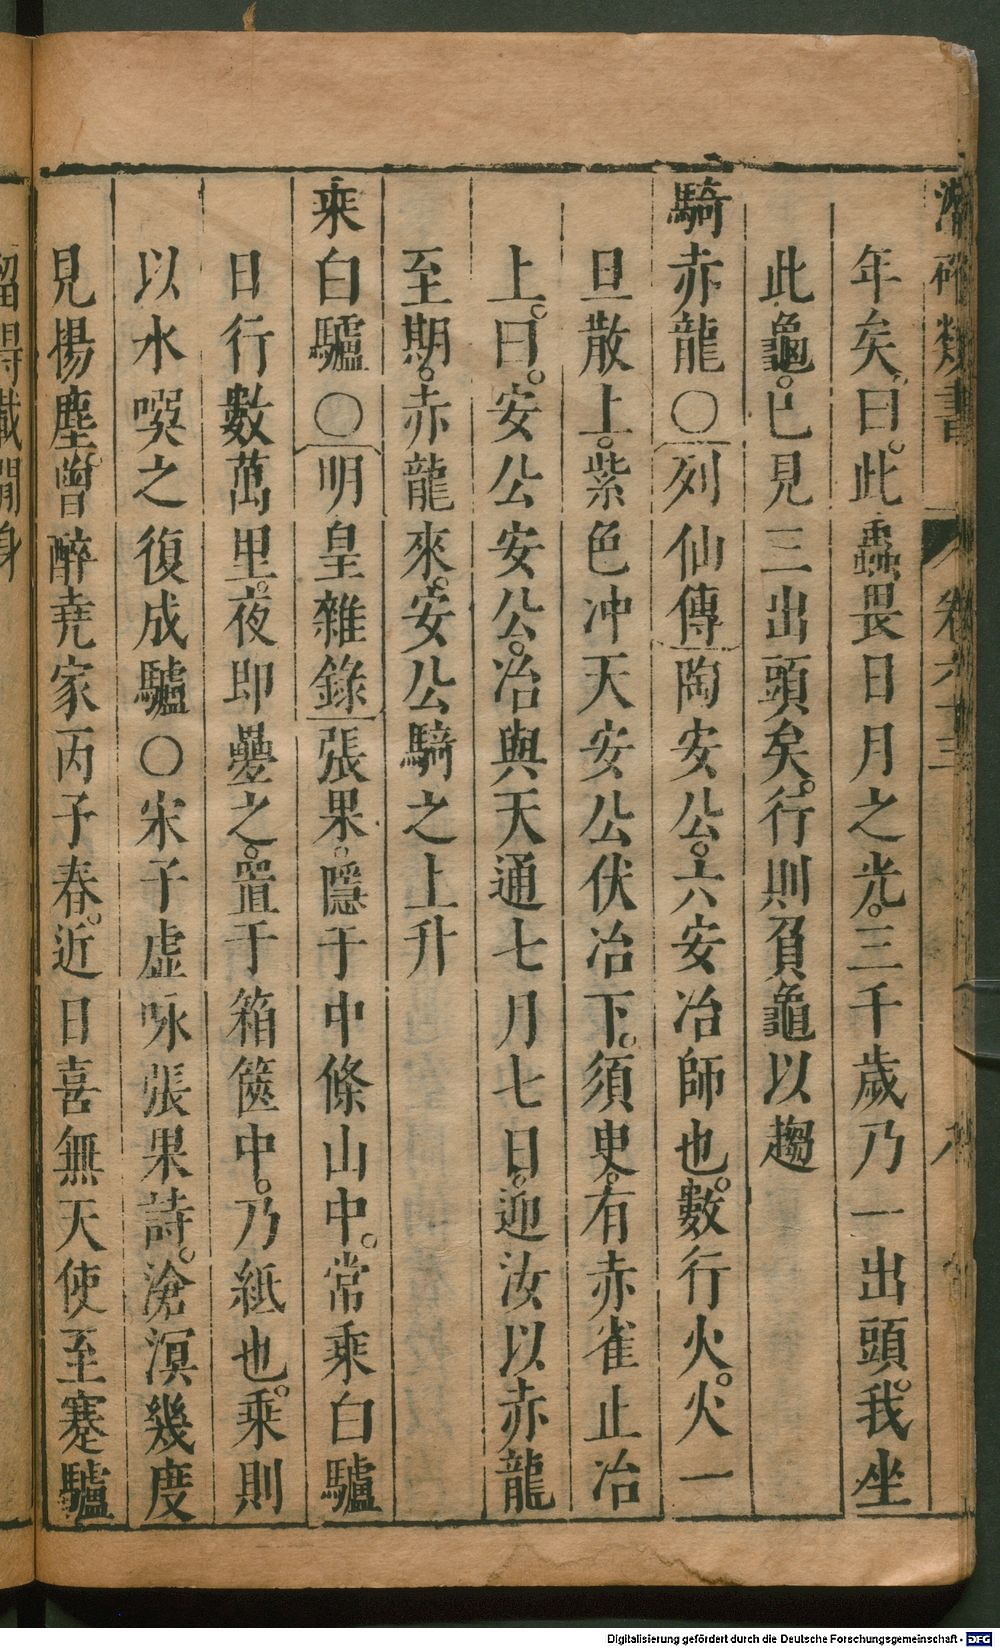 潛確類書 卷六十三 八
年矣曰此蟲畏日月之光三千歲乃一出頭我坐
此龜已見三出頭矣行則負龜以趨
騎赤龍○列仙傳陶安公六安冶師也數行火火一
旦散上紫色冲天安公伏冶下須臾有赤雀止冶
上曰安公安公冶與天通七月七日迎汝以赤龍
至期赤龍來安公騎之上升
乘白驢○明皇雜錄張果隱于中條山中常乘白驢
日行數萬里夜即疊之置于箱篋中乃紙也乘則
以水噀之復成驢○宋子虛咏張果詩滄溟幾度
見揚塵曾醉堯家丙子春近日喜無天使至蹇驢
留得載閒身
Digitalisierung gefördert durch die Deutsche Forschungsgemeinschaft - DFG